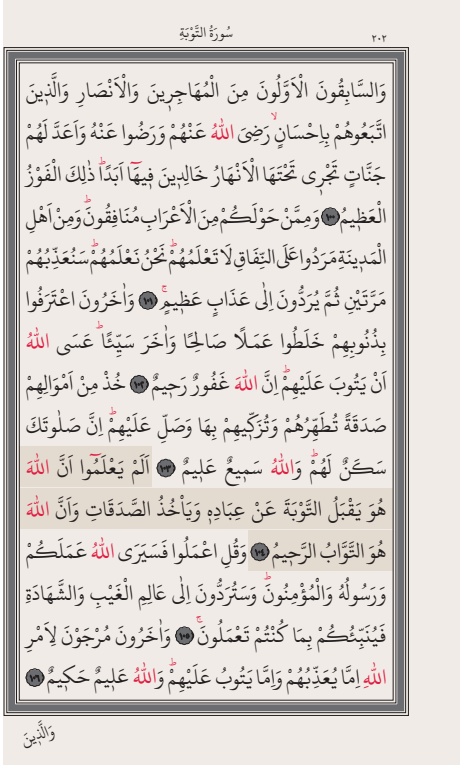 سُورَةُ التَّوْبَةِ
٢٠٢
وَالسَّابِقُونَ الْاَوَّلُونَ مِنَ الْمُهَاجِرِينَ وَالْاَنْصَارِ وَالَّذِينَ
اتَّبَعُوهُمْ بِاِحْسَانٍۙ رَضِيَ اللّٰهُ عَنْهُمْ وَرَضُوا عَنْهُ وَاَعَدَّ لَهُمْ
جَنَّاتٍ تَجْرِي تَحْتَهَا الْاَنْهَارُ خَالِدِينَ فِيهَٓا اَبَدًاۜ ذٰلِكَ الْفَوْزُ
الْعَظِيمُ ﴿١٠٠﴾ وَمِمَّنْ حَوْلَكُمْ مِنَ الْاَعْرَابِ مُنَافِقُونَۜ وَمِنْ اَهْلِ
الْمَدِينَةِ مَرَدُوا عَلَى النِّفَاقِ لَا تَعْلَمُهُمْۜ نَحْنُ نَعْلَمُهُمْۜ سَنُعَذِّبُهُمْ
مَرَّتَيْنِ ثُمَّ يُرَدُّونَ اِلٰى عَذَابٍ عَظِيمٍۚ ﴿١٠١﴾ وَاٰخَرُونَ اعْتَرَفُوا
بِذُنُوبِهِمْ خَلَطُوا عَمَلًا صَالِحًا وَاٰخَرَ سَيِّئًاۜ عَسَى اللّٰهُ
اَنْ يَتُوبَ عَلَيْهِمْۜ اِنَّ اللّٰهَ غَفُورٌ رَحِيمٌ ﴿١٠٢﴾ خُذْ مِنْ اَمْوَالِهِمْ
صَدَقَةً تُطَهِّرُهُمْ وَتُزَكِّيهِمْ بِهَا وَصَلِّ عَلَيْهِمْۜ اِنَّ صَلٰوتَكَ
سَكَنٌ لَهُمْۜ وَاللّٰهُ سَمِيعٌ عَلِيمٌ ﴿١٠٣﴾ اَلَمْ يَعْلَمُٓوا اَنَّ اللّٰهَ
هُوَ يَقْبَلُ التَّوْبَةَ عَنْ عِبَادِهِ وَيَاْخُذُ الصَّدَقَاتِ وَاَنَّ اللّٰهَ
هُوَ التَّوَّابُ الرَّحِيمُ ﴿١٠٤﴾ وَقُلِ اعْمَلُوا فَسَيَرَى اللّٰهُ عَمَلَكُمْ
وَرَسُولُهُ وَالْمُؤْمِنُونَۜ وَسَتُرَدُّونَ اِلٰى عَالِمِ الْغَيْبِ وَالشَّهَادَةِ
فَيُنَبِّئُكُمْ بِمَا كُنْتُمْ تَعْمَلُونَۚ ﴿١٠٥﴾ وَاٰخَرُونَ مُرْجَوْنَ لِاَمْرِ
اللّٰهِ اِمَّا يُعَذِّبُهُمْ وَاِمَّا يَتُوبُ عَلَيْهِمْۜ وَاللّٰهُ عَلِيمٌ حَكِيمٌ ﴿١٠٦﴾
وَالَّذِينَ